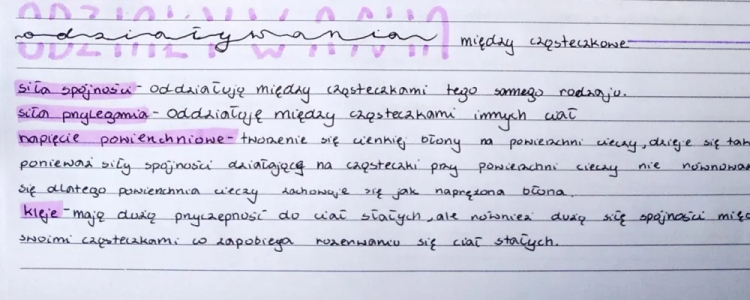 ODZIAŁYWANIA
odziaływania międzycząsteczkowe
siła spójności - oddziałują między cząsteczkami tego samego rodzaju.
siła przylegania - oddziałuję między cząsteczkami innych ciał
napięcie powierzchniowe - tworzenie się cienkiej błony na powierzchni cieczy, dzieje się tak
ponieważ siły spójności działające na cząsteczki przy powierzchni cieczy nie równoważ
się dlatego powierzchnia cieczy zachowuje się jak naprężona błona.
kleje - mają dużą przyczepność do ciał stałych, ale również dużą siłę spójności mię
swoimi cząsteczkami co zapobiega rozerwaniu się ciał stałych.